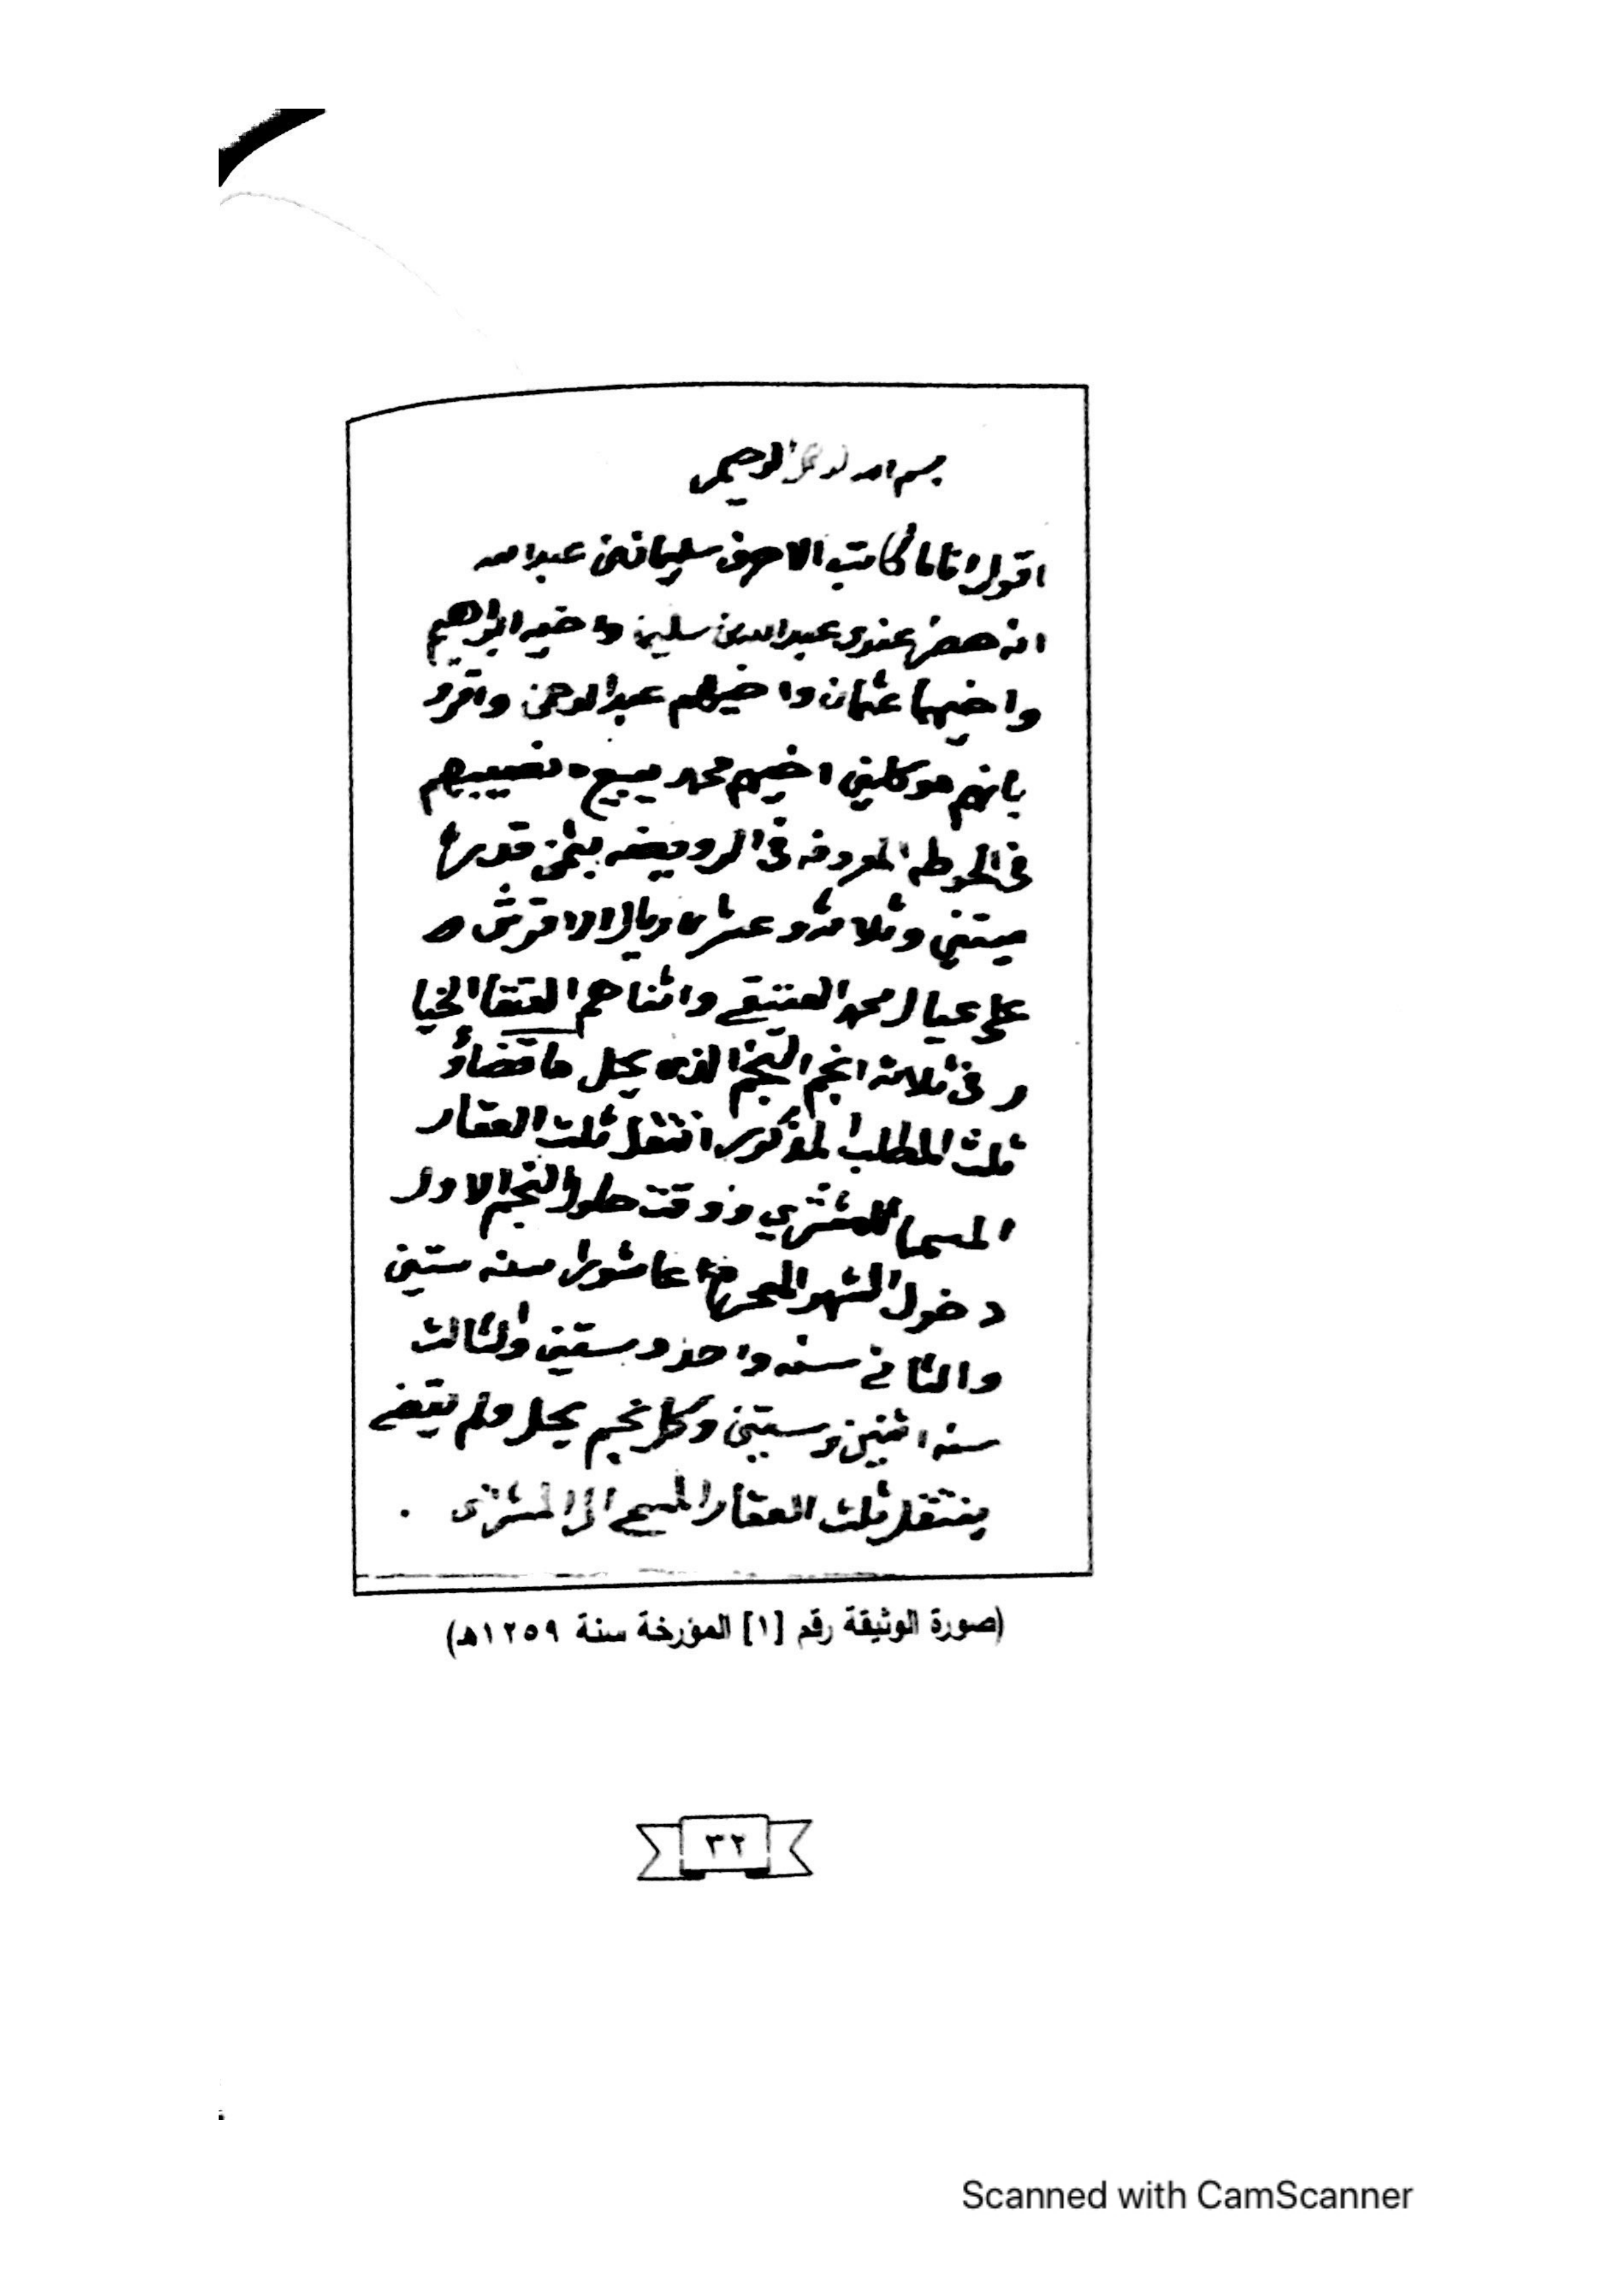 بسم الله الرحمن الرحيم
اقول انا يا كاتب الاحرف سليمان بن عبدالله
انه حضر عندي عبدالله بن سليمن واخيه ابراهيم
واخيهما عثمان واخيهم عبدالرحمن واقرو
بانهم موكلين اخيهم محمد يبيع نصيبهم
في الحوطه المعروفه في الرويضه بثمن قدره
ميتين وثلاثه وعشره ريال الا قرش
على عيال محمد العتيقي واثناهم العتقا الخيا
ر في ثلاثة انجم النجم الذي يحل ما قضاؤ
ثلث المطلب المذكور انتقل ثلث العقار
المسما للمشتري ووقت حلول النجم الاول
دخول الشهر المحرم عاشور سنه ستين
والثاني سنه واحد وستين والثالث
سنه اثنين وستين وكل نجم يحل ولم يقضى
ينتقل ثلث العقار المسمى الى المشتري .
(صورة الوثيقة رقم [١] المؤرخة سنة ١٢٥٩هـ)
٣٢
Scanned with CamScanner